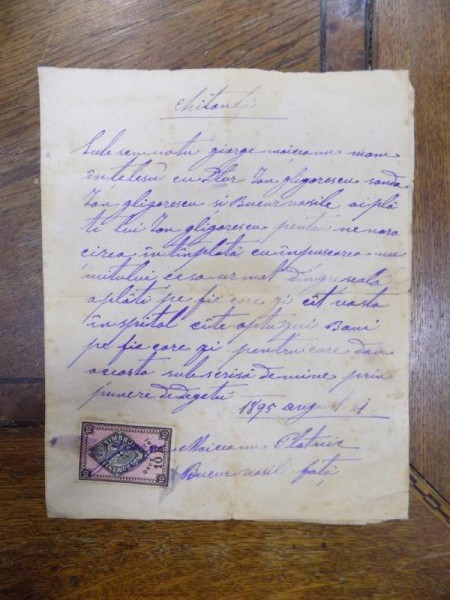 chitanță
Subsemnatu giorge moiceanu mam
înțelesu cu Dlor Ion gligorescu sanda
Ion gligorescu și Bucur vasile a i plă
ti lui Ion gligorescu pentru ne noro
cirea întîmplată cu înpuscarea nu
mitului ce sa urmat
aplăti pe fie care zi cît va sta
în spital cîte optu zeci Bani
pe fie care zi pentru care dau
aceasta subscrisă de mine prin
punere dedegetu
1895 aug
Moiceanu
Bucur vasile față
TIMBRU
10
10 B